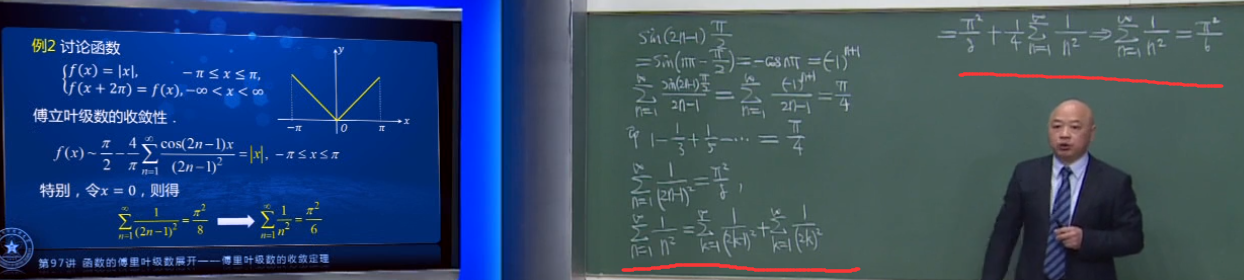 例2 讨论函数
{f(x) = |x|, −π ≤ x ≤ π,
f(x + 2π) = f(x), −∞ < x < ∞
傅立叶级数的收敛性.
y
−π O π x
f(x) ~ π/2 − 4/π ∑_{n=1}^{∞} cos(2n−1)x/(2n−1)² = |x|, −π ≤ x ≤ π
特别，令x = 0，则得
∑_{n=1}^{∞} 1/(2n−1)² = π²/8 ➡ ∑_{n=1}^{∞} 1/n² = π²/6
第97讲 函数的傅里叶级数展开——傅里叶级数的收敛定理
sin(2n−1)π/2
= sin(nπ − π/2) = −cos nπ = (−1)^{n+1}
∑_{n=1}^{∞} sin(2n−1)π/2 / (2n−1) = ∑_{n=1}^{∞} (−1)^{n+1}/(2n−1) = π/4
即 1 − 1/3 + 1/5 − ⋯ = π/4
∑_{n=1}^{∞} 1/(2n−1)² = π²/8,
∑_{n=1}^{∞} 1/n² = ∑_{k=1}^{∞} 1/(2k−1)² + ∑_{k=1}^{∞} 1/(2k)²
= π²/8 + 1/4 ∑_{n=1}^{∞} 1/n² ⇒ ∑_{n=1}^{∞} 1/n² = π²/6